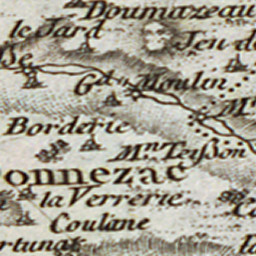 Doumazeau
le Jard
Jeu de
Gd. Moulin
Borderie
Mn. Teißon
onnezac
la Verrerie
Coulane
ortunat
la